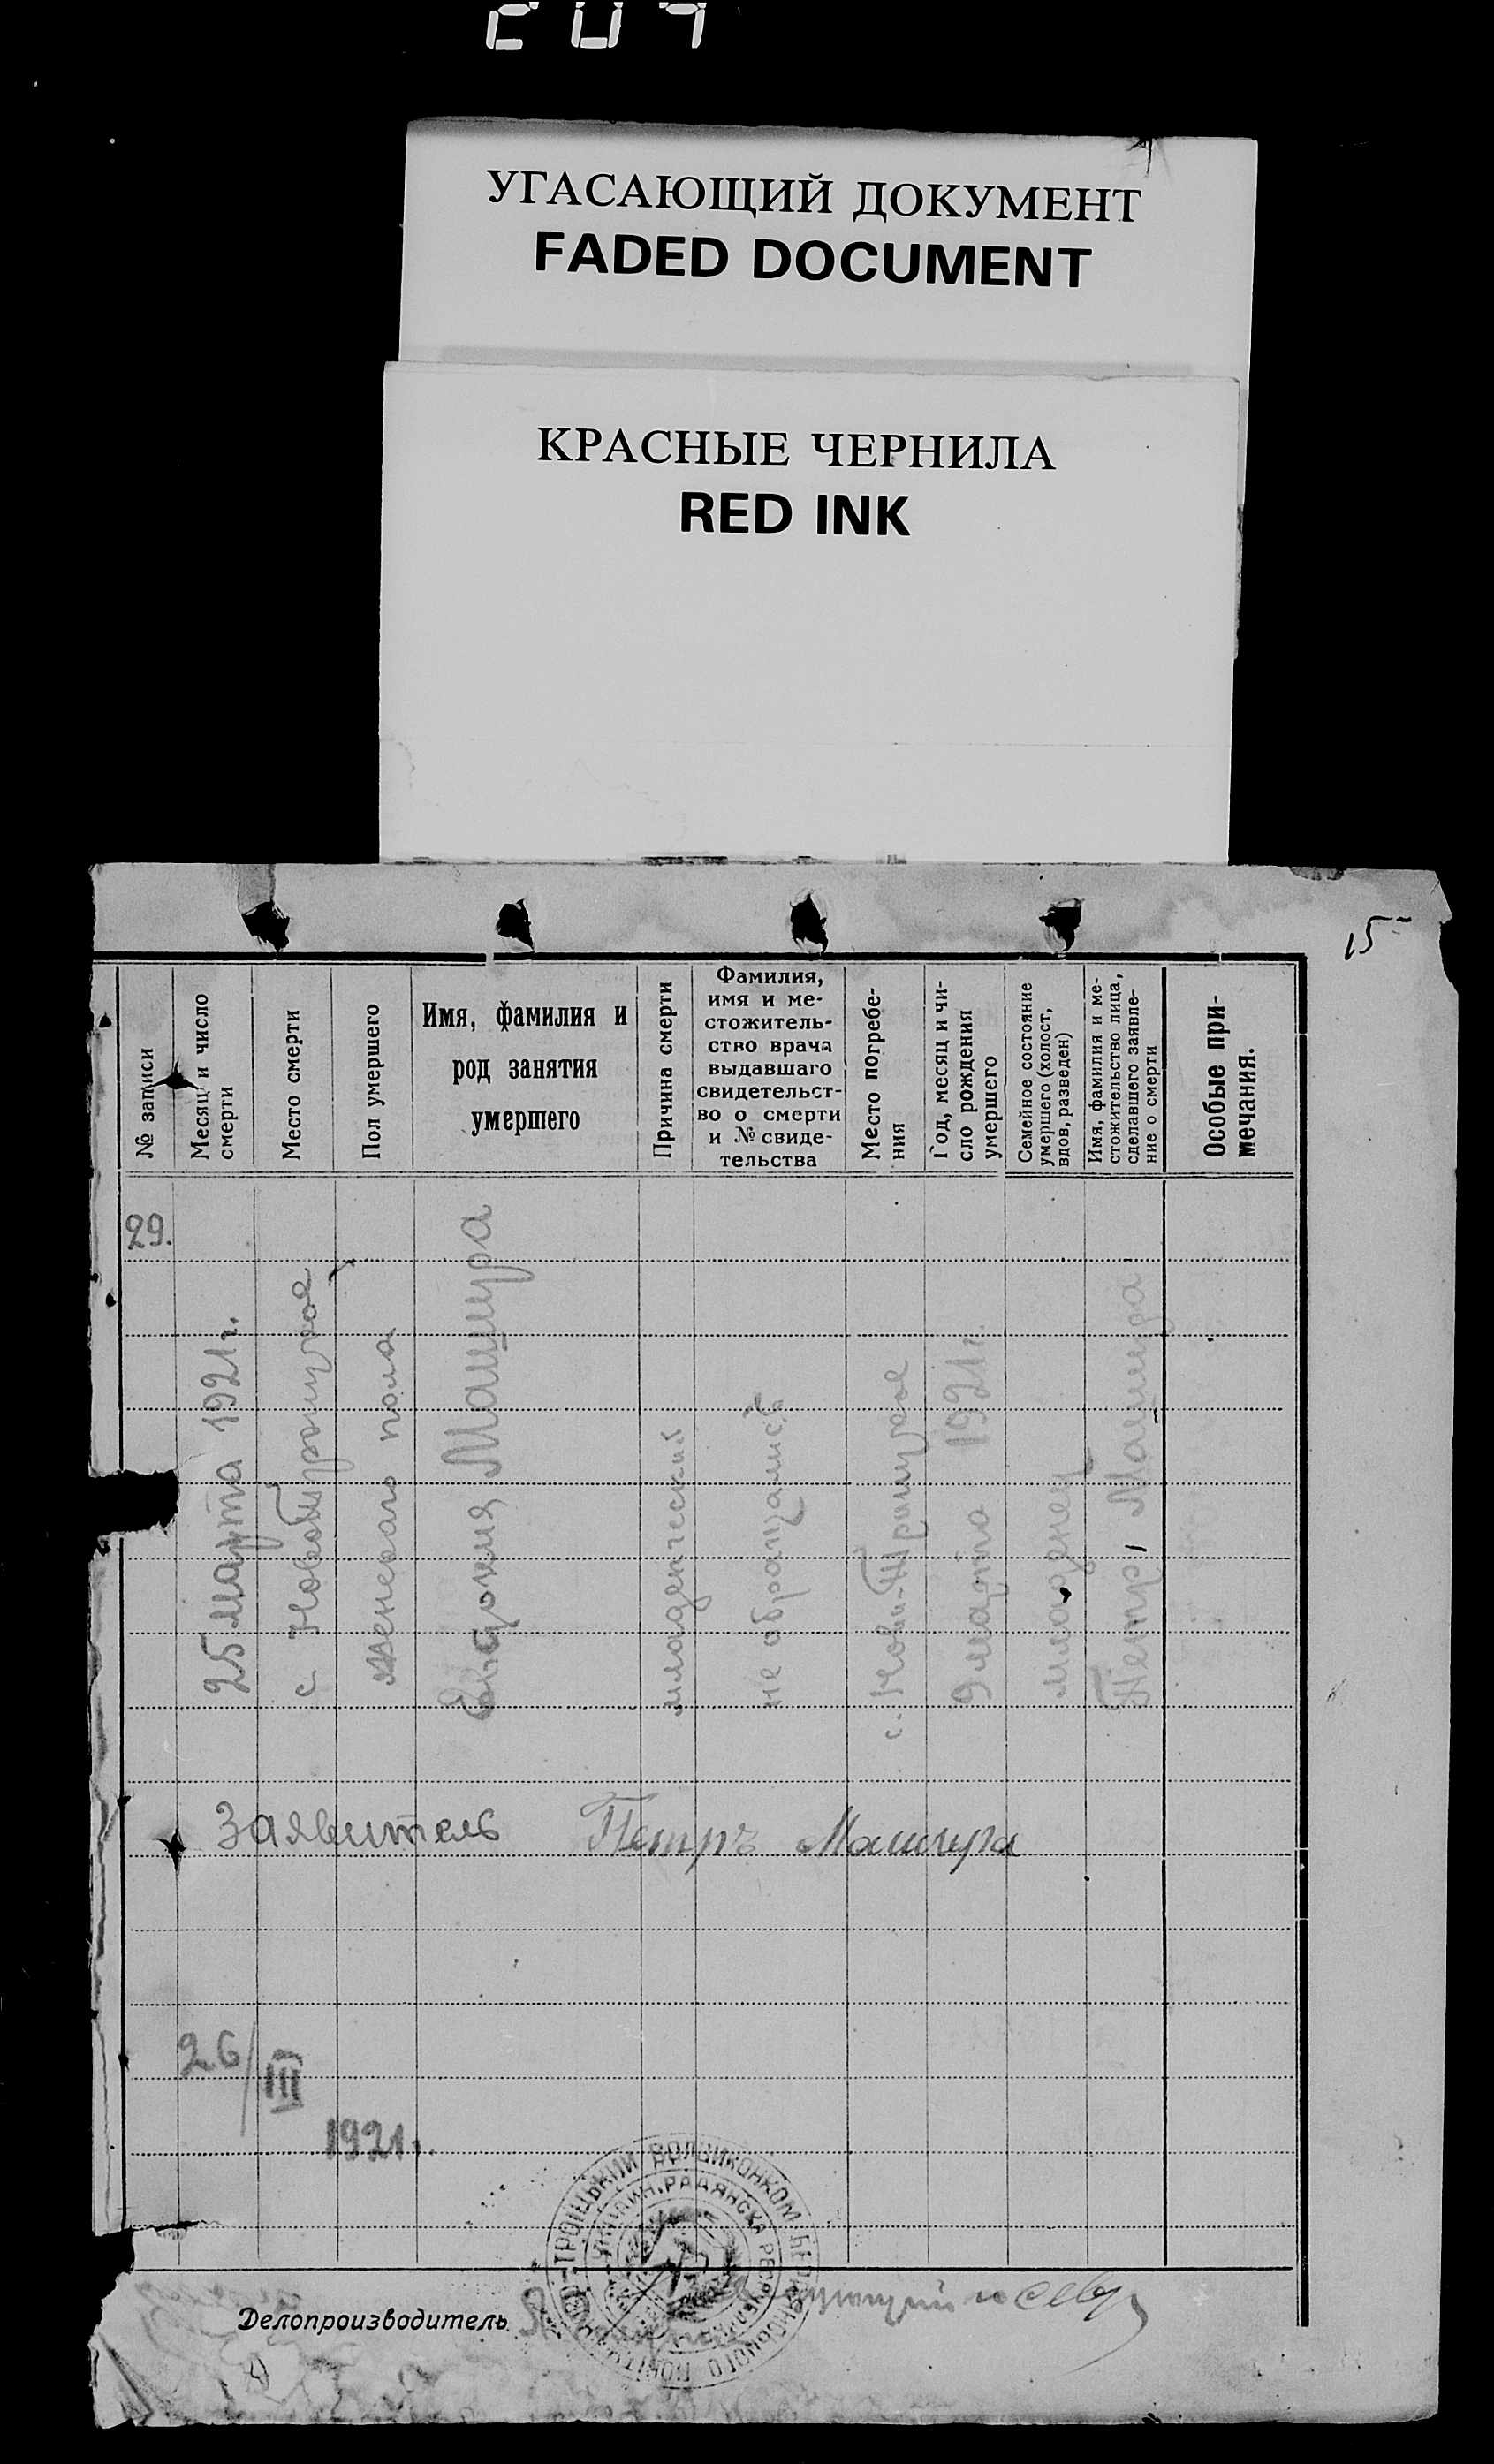 209
УГАСАЮЩИЙ ДОКУМЕНТ
FADED DOCUMENT
КРАСНЫЕ ЧЕРНИЛА
RED INK
15
№ записи
Месяц и число
смерти
Место смерти
Пол умершего
Имя, фамилия и
род занятия
умершего
Причина смерти
Фамилия,
имя и ме-
стожитель-
ство врача
выдавшаго
свидетельст-
во о смерти
и № свиде-
тельства
Место погребе-
ния
Год, месяц и чи-
сло рождения
умершего
Семейное состояние
умершего (холост,
вдов, разведен)
Имя, фамилия и ме-
стожительство лица,
сделавшего заявле-
ние о смерти
Особые при-
мечания.
29.
25 марта 1921 г.
с Новотроицкое
женского пола
Евдокия Машура
младенческий
не обращались
с. Ново-Троицкое
9 марта 1921 г.
младенец
Петр Машура
Заявитель Петръ Машура
26/III
1921 г.
ТРОІЦЬКИЙ ВОЛВИКОНКОМ БЕРДЯНСЬКОГО ПОВІТУ
РАДЯНСКА РЕСПУБЛІКА
Делопроизводитель